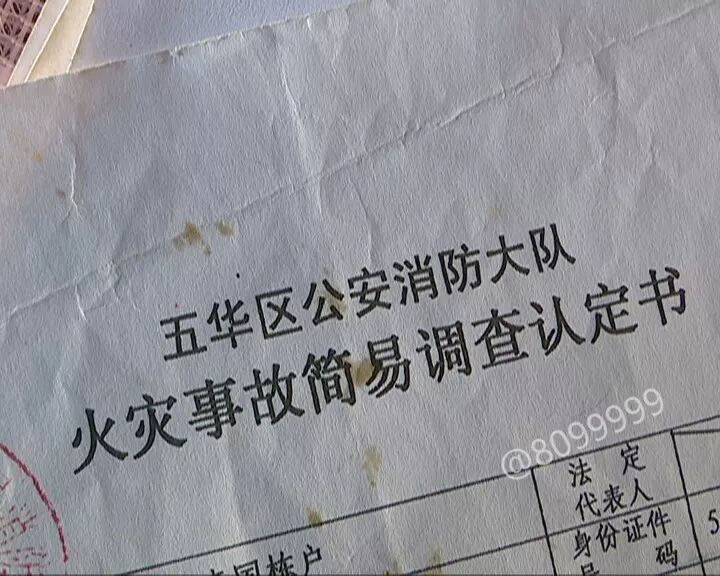 五华区公安消防大队
火灾事故简易调查认定书
@8099999
法 定
代表人
身份证件
码
5
国栋户